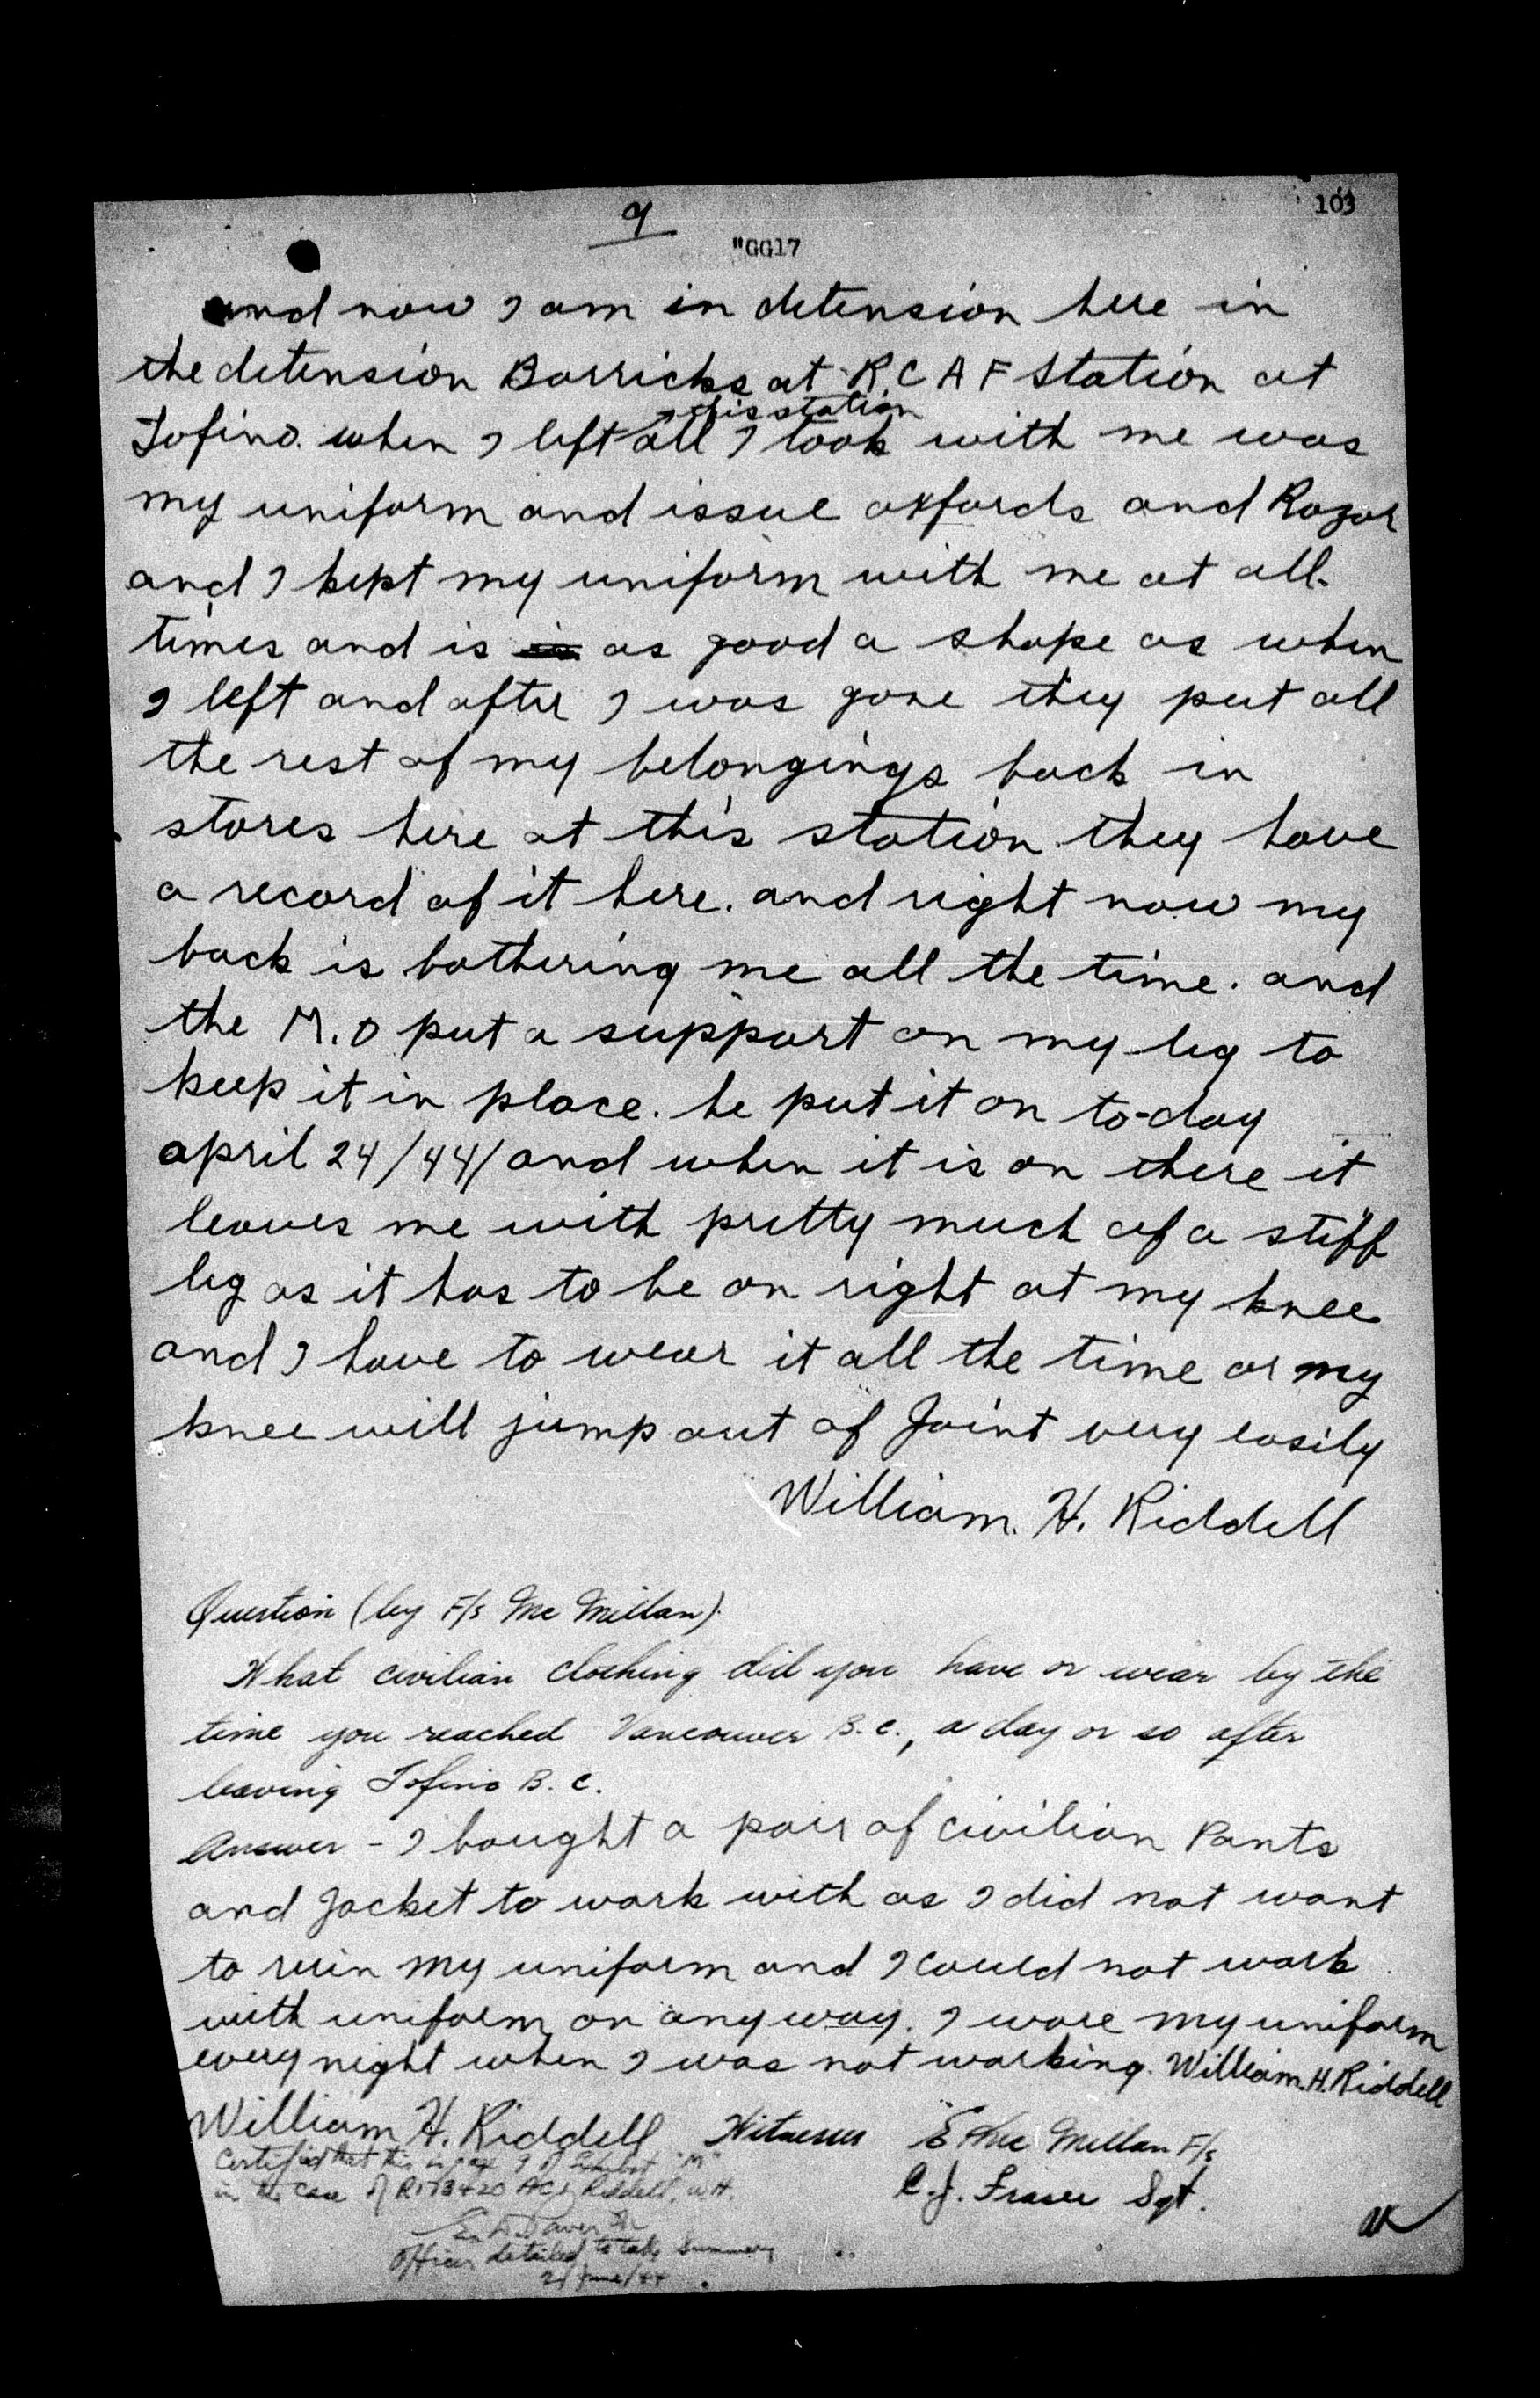 103
9
"GG17
and now I am in detension here in
the detension Barricks at R.C A F Station at
this station
Tofino. when I left all I took with me was
my uniform and issue oxfords and Razor
and I kept my uniform with me at all
times and is as good a shape as when
I left and after I was gone they put all
the rest of my belongings back in
stores here at this station they have
a record of it here. and right now my
back is bothering me all the time. and
the M.O put a support on my leg to
keep it in place. he put it on to-day
april 24/44/ and when it is on there it
leaves me with pretty much of a stiff
leg as it has to be on right at my knee
and I have to wear it all the time or my
knee will jump out of Joint very easily
William. H. Riddell
Question (by F/s Mc Millan).
What civilian clothing did you have or wear by the
time you reached Vancouver B.C., a day or so after
leaving Tofino B. C.
Answer - I bought a pair of civilian Pants
and Jacket to work with as I did not want
to ruin my uniform and I could not work
with uniform on any way. I wore my uniform
every night when I was not working. William. H. Riddell
William H. Riddell Witnesses E Mc Millan F/s
Certified that this is page 9 of Exhibit "M"
C. J. Fraser Sgt.
in the case of R173420 Riddell, W.H.
Officer detailed to take Summary
2/June/44